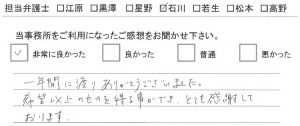 担当弁護士 □江原 □黒澤 □星野 ☑石川 □若生 □松本 □高野
当事務所をご利用になったご感想をお聞かせ下さい。
☑ 非常に良かった □ 良かった □ 普通 □ 悪かった
一年間に渡りありがとうございました。
希望以上のものを得る事ができ、とても感謝して
おります。